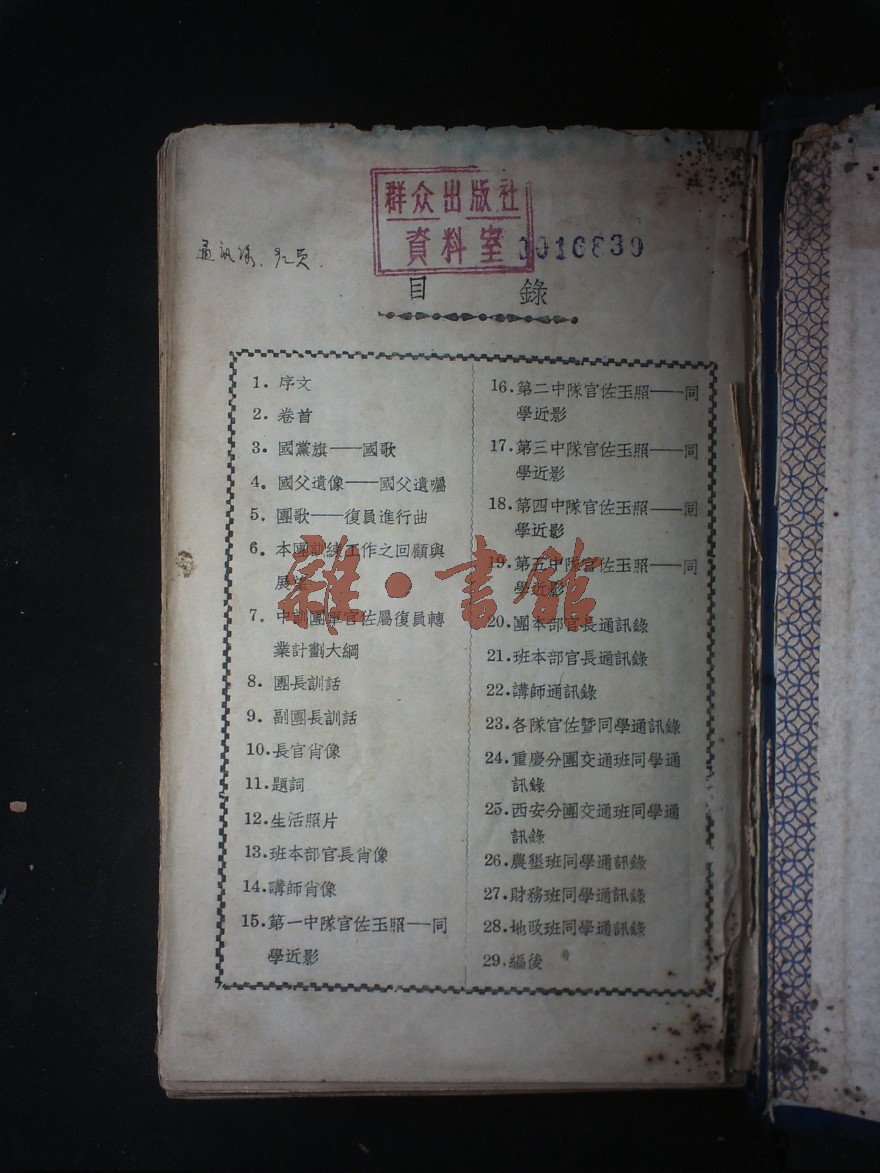 群众出版社
資料室
0016839
目錄
1. 序文
2. 卷首
3. 國黨旗——國歌
4. 國父遺像——國父遺囑
5. 團歌——復員進行曲
6. 本團訓練工作之回顧與
展望
7. 中訓團軍官佐屬復員轉
業計劃大綱
8. 團長訓話
9. 副團長訓話
10. 長官肖像
11. 題詞
12. 生活照片
13. 班本部官長肖像
14. 講師肖像
15. 第一中隊官佐玉照——同
學近影
16. 第二中隊官佐玉照——同
學近影
17. 第三中隊官佐玉照——同
學近影
18. 第四中隊官佐玉照——同
學近影
19. 第五中隊官佐玉照——同
學近影
20. 團本部官長通訊錄
21. 班本部官長通訊錄
22. 講師通訊錄
23. 各隊官佐暨同學通訊錄
24. 重慶分團交通班同學通
訊錄
25. 西安分團交通班同學通
訊錄
26. 農墾班同學通訊錄
27. 財務班同學通訊錄
28. 地政班同學通訊錄
29. 編後
雜·書館